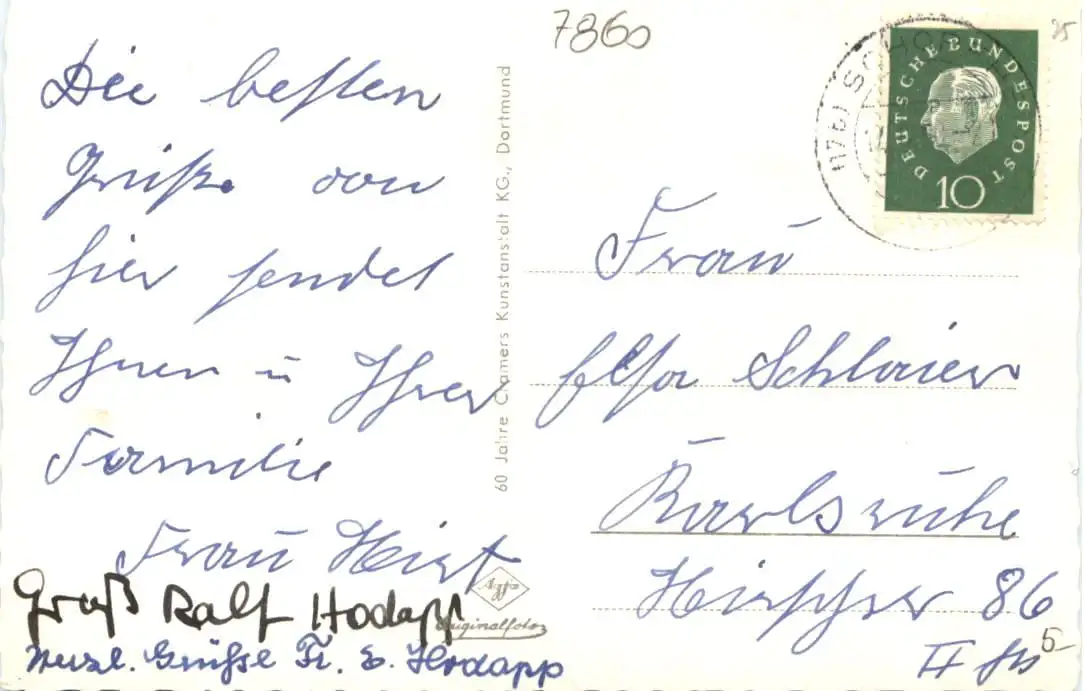 7860
Die besten
Grüße von
hier sendet
Ihnen u Ihrer
Familie
Frau Hirt
Gruß Ralf Hodapp
Herzl. Grüße Fr. E. Hodapp
60 Jahre Cramers Kunstanstalt KG., Dortmund
Agfa
Originalfoto
DEUTSCHE BUNDESPOST
10
(17b) SCHOP
Frau
Elsa Schlaier
Karlsruhe
Hirschstr 86
II
5-